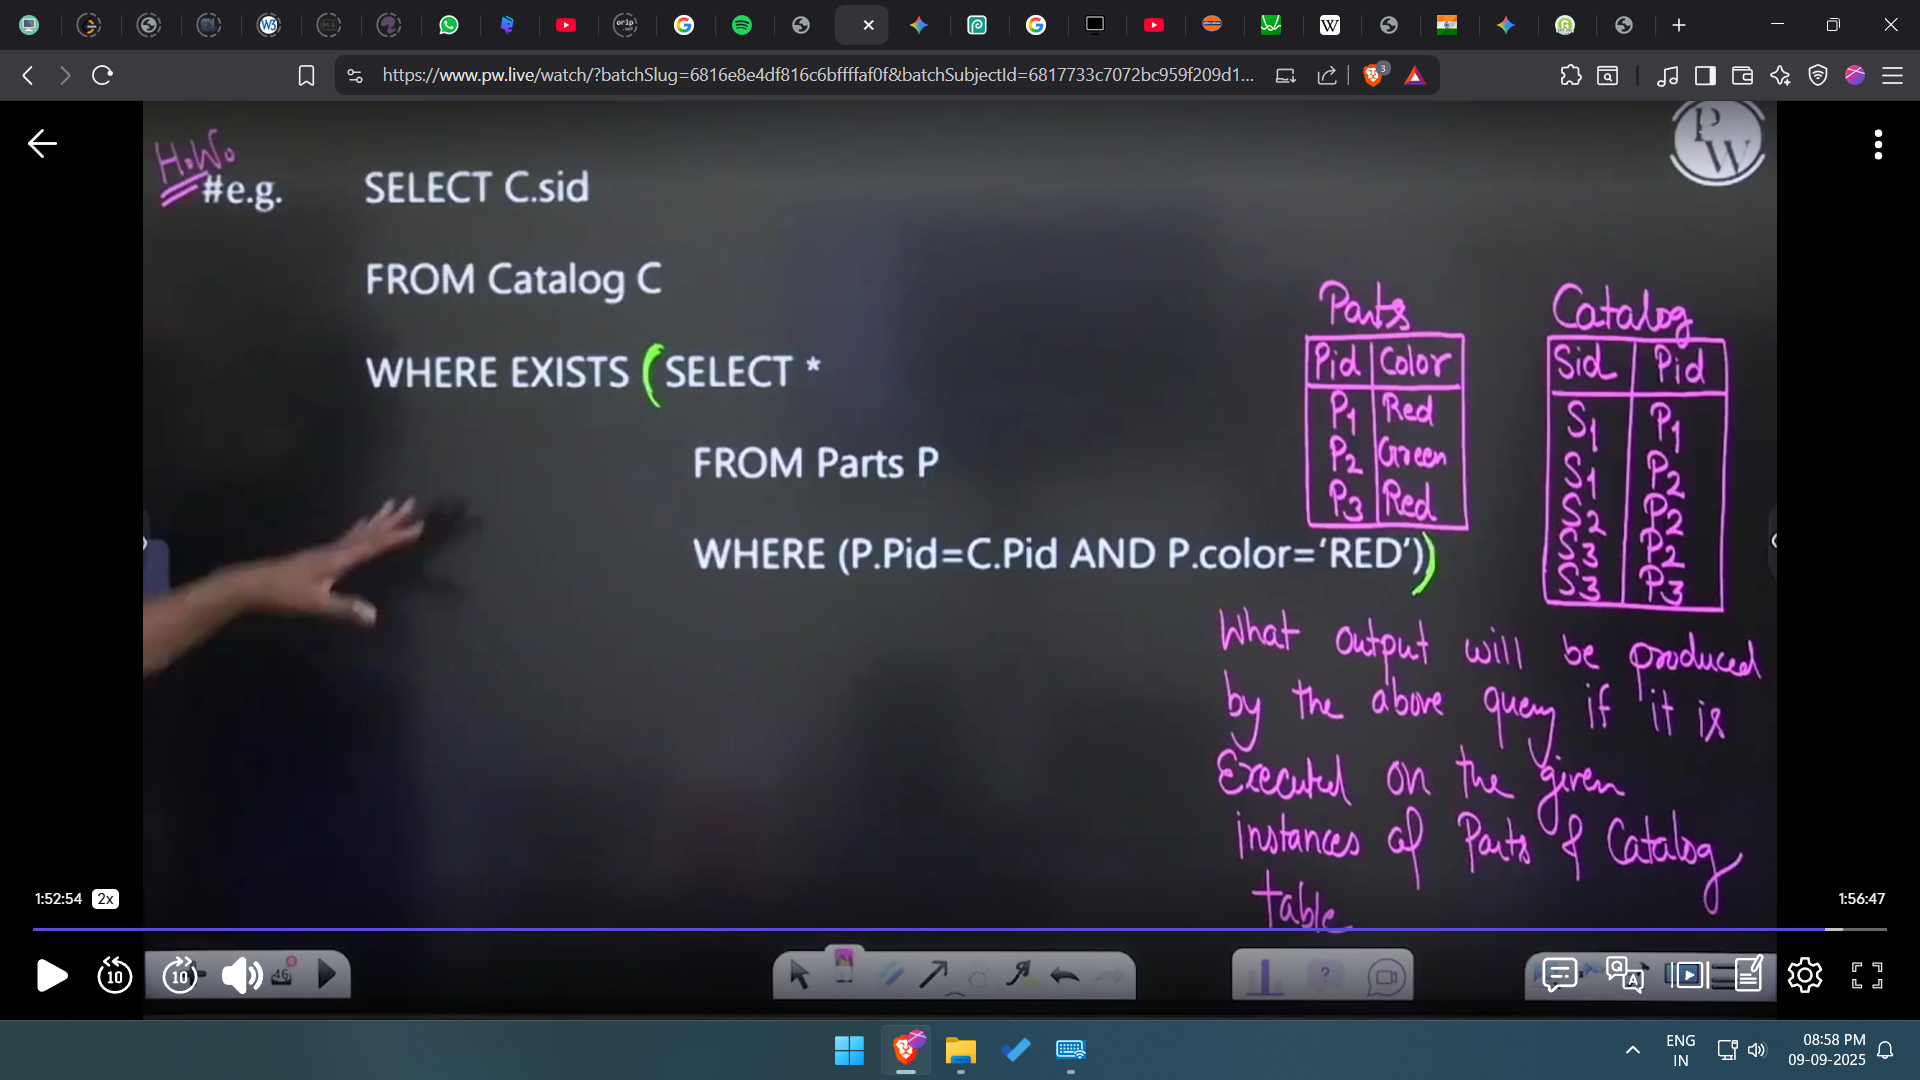 https://www.pw.live/watch/?batchSlug=6816e8e4df816c6bffffaf0f&batchSubjectId=6817733c7072bc959f209d1...
3
H.W.
PW
#e.g.
SELECT C.sid
FROM Catalog C
WHERE EXISTS (SELECT *
FROM Parts P
WHERE (P.Pid=C.Pid AND P.color=‘RED’))
Parts
Pid Color
P1 Red
P2 Green
P3 Red
Catalog
Sid Pid
S1 P1
S1 P2
S2 P2
S3 P2
S3 P3
What output will be produced
by the above query if it is
Executed on the given
instances of Parts & Catalog
table
1:52:54 2x
1:56:47
10
10
46
?
Q A
ENG
IN
08:58 PM
09-09-2025